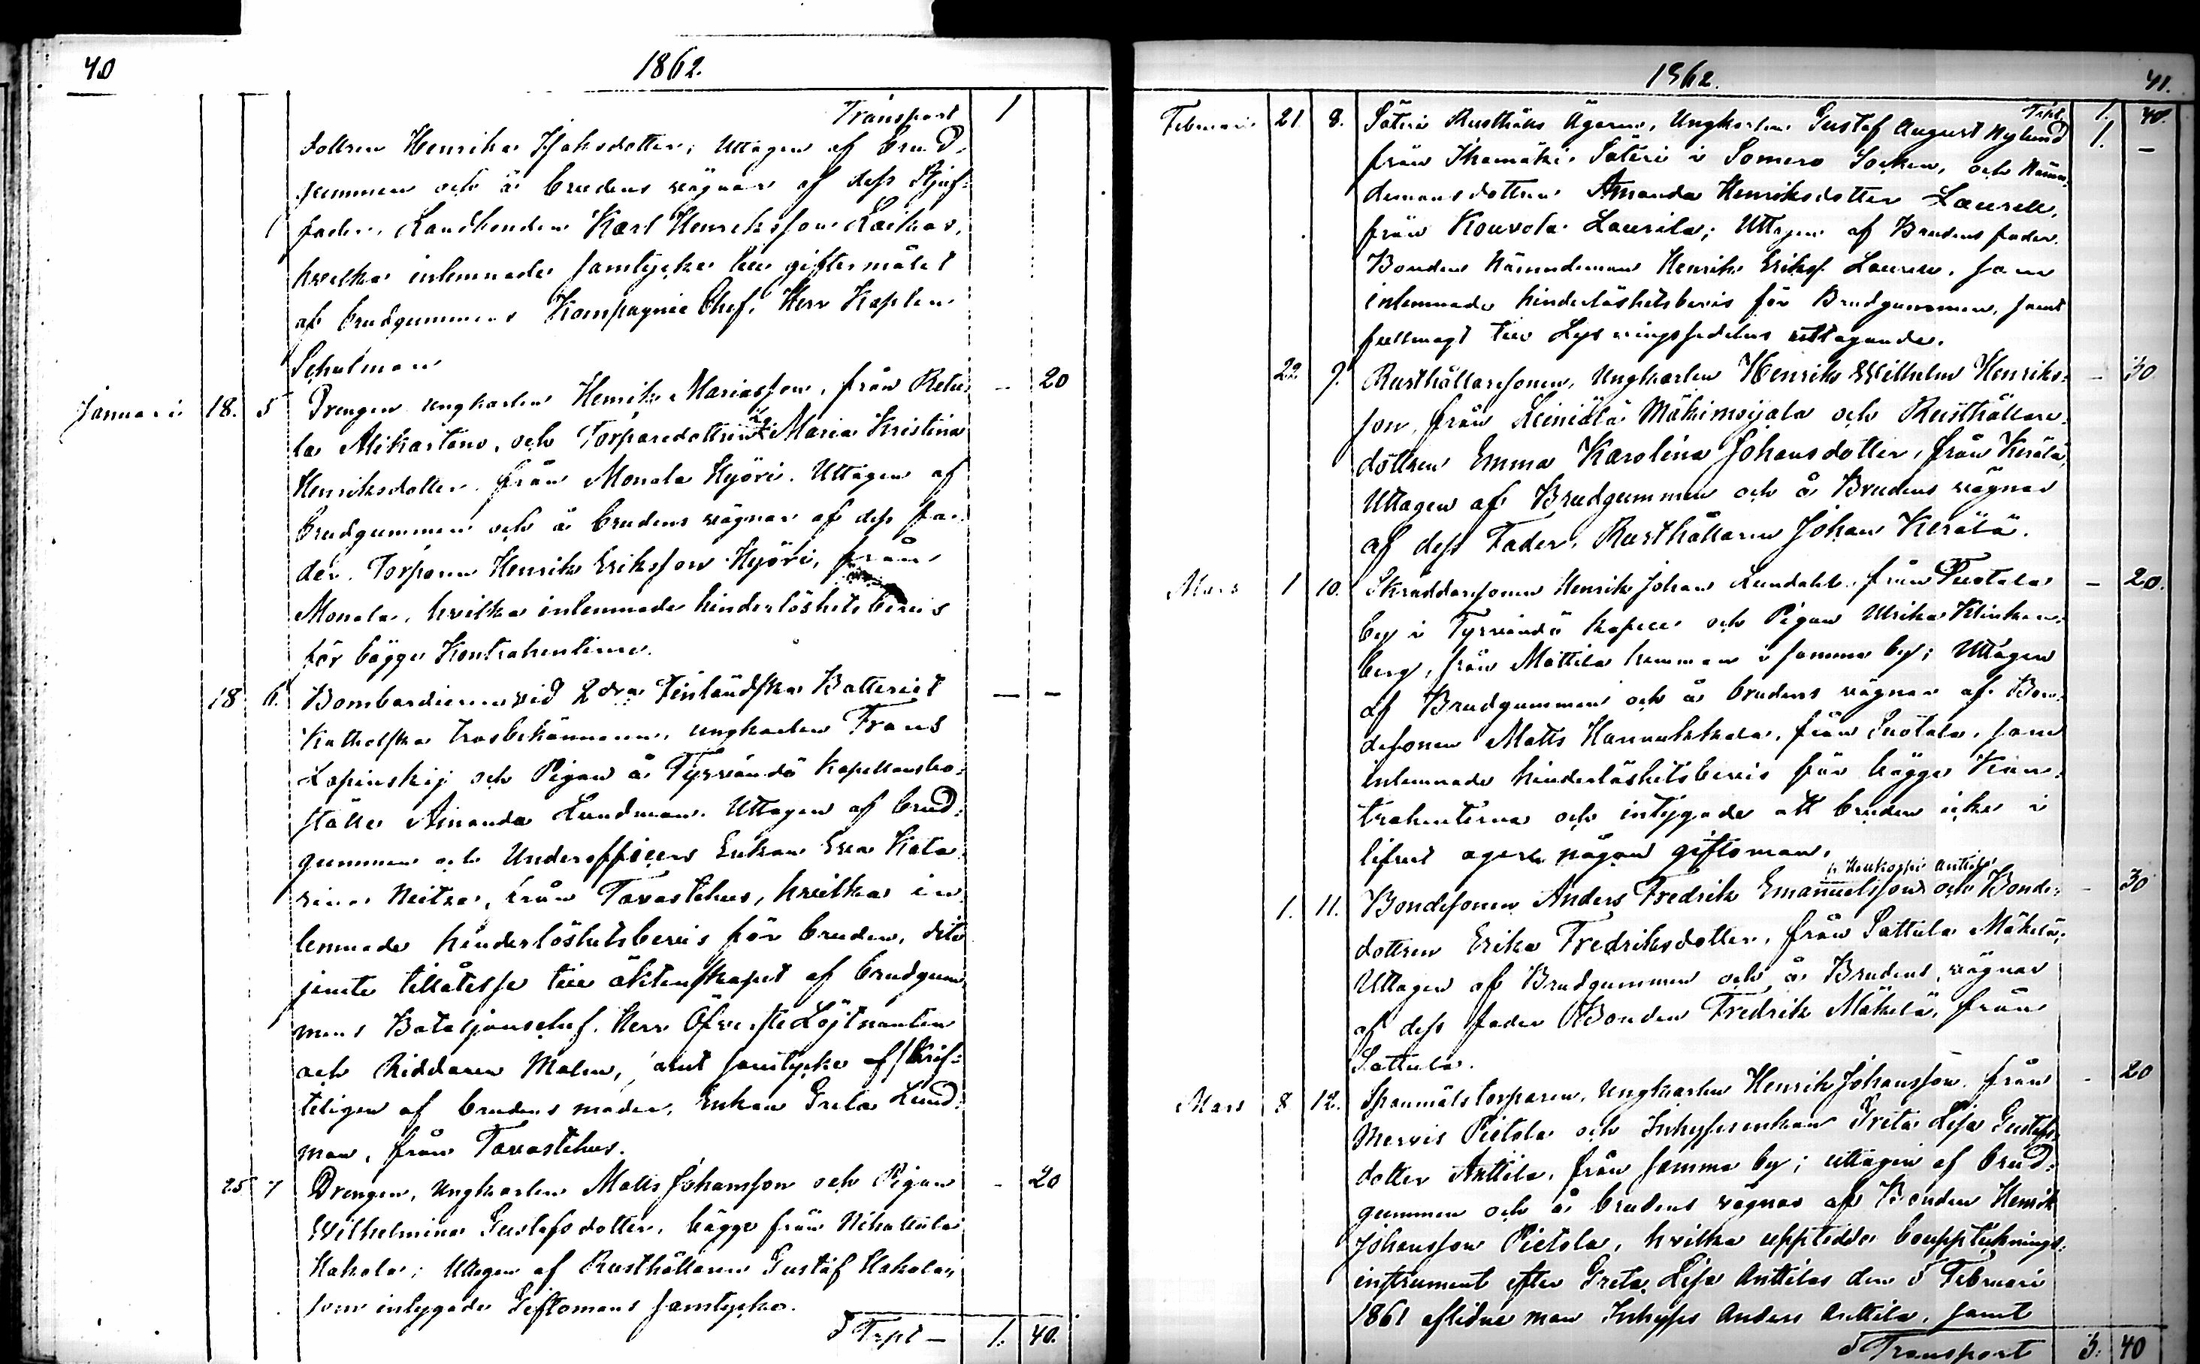 40
1862.
Transport 1
dottren Henrika Isaksdotter; Uttagen af brud-
gummen och å brudens vägnar af dess Stjuf-
fader, Landbonden Karl Henriksson
hvilka inlemnade samtycke till giftermålet
af brudgummens Kompagnie Chef, Herr Kapten
Schulman
Januari 18. 5 Drengen ungkarlen Henrik Mariasson, från Retu- – 20
la Alikartano, och Torparedottren Maria Kristina
Henriksdotter från Monala Hyöri. Uttagen af
brudgummen och å brudens vägnar af dess fa-
der Torparen Henrik Eriksson Hyöri, från
Monala, hvilka inlemnade hinderlöshetsbevis
för bägge Kontrahenterne.
18 6. Bombardieren vid 2dra Finländska Batteriet — –
Katholska trosbekännaren, ungkarlen Frans
Lopinskij och Pigan å Tyrvändö Kapellansbo-
ställe Amanda Lundman. Uttagen af brud-
gummen och Underofficers Enkan Eva Kata-
rina från Tavastehus, hvilka in-
lemnade hinderlöshetsbevis för bruden,
jemte tillåtelse till äktenskapet af brudgum-
mens Bataljonschef. Herr Öfverste Löjtnanten
och Riddaren Malm, samt samtycke skrif-
teligen af brudens moder, Enkan Greta Lund-
man, från Tavastehus.
25 7 Drengen, Ungkarlen Matts Johansson och Pigan – 20
Wilhelmina Gustafsdotter, bägge från Nihattula
Hakala; Uttagen af Rusthållaren Gustaf Hakala,
som intygade Giftomans samtycke.
Trpt — 1. 40.
1862. 41.
Trpt 1. 40.
Februari 21 8. Säteri Rusthålls Ägaren, Ungkarlen Gustaf August Nylund 1. –
från Ihamäki Säteri i Somero Socken, och Nämn-
demansdottren Amanda Henriksdotter Laurell,
från Kouvola Laurila; Uttagen af Brudens fader
Bonden Nämndeman Henrik Eriks. Laurell, som
inlemnade hinderlöshetsbevis för Brudgummen, samt
fullmagt till Lysningssedelns uttagande.
22. 9. Rusthållaresonen, Ungkarlen Henrik Wilhelm Henriks- – 30
son, från Leiniälä Mäkimoijala och Rusthållare-
dottren Emma Karolina Johansdotter, från Kerälä,
Uttagen af Brudgummen och å Brudens vägnar
af dess Fader, Rusthållaren Johan Kerälä.
Mars 1 10. Skräddaresonen Henrik Johan Lundahl från Suotala – 20.
by i Tyrvändö kapell och Pigan Ulrika Klinkan-
berg, från Mattila hemman i samma by; Uttagen
af Brudgummen och å brudens vägnar af Bon-
desonen Matts från Suotala, som
inlemnade hinderlöshetsbevis för bägge Kon-
trahenterna och intygade att bruden icke i
lifvet ägde någon giftoman.
Anttila
1. 11. Bondesonen Anders Fredrik Emanuelsson och Bonde- – 30
dottren Erika Fredriksdotter, från Sattula Mäkelä,
Uttagen af Brudgummen och å Brudens vägnar
af dess fader Bonden Fredrik Mäkelä, från
Sattula.
Mars 8 12. Spanmålstorparen, Ungkarlen Henrik Johansson från – 20
Mervis Pietola och Inhysesenkan Greta Lisa Gustafs-
dotter Anttila, från samma by; uttagen af brud-
gummen och å brudens vägnar af Bonden Henrik
Johansson Pietola, hvilka uppteddde boupptecknings-
instrument efter Greta Lisa Anttilas den 5 Februari
1861 aflidne man Inhyses Anders Anttila, samt
Transport 3. 40